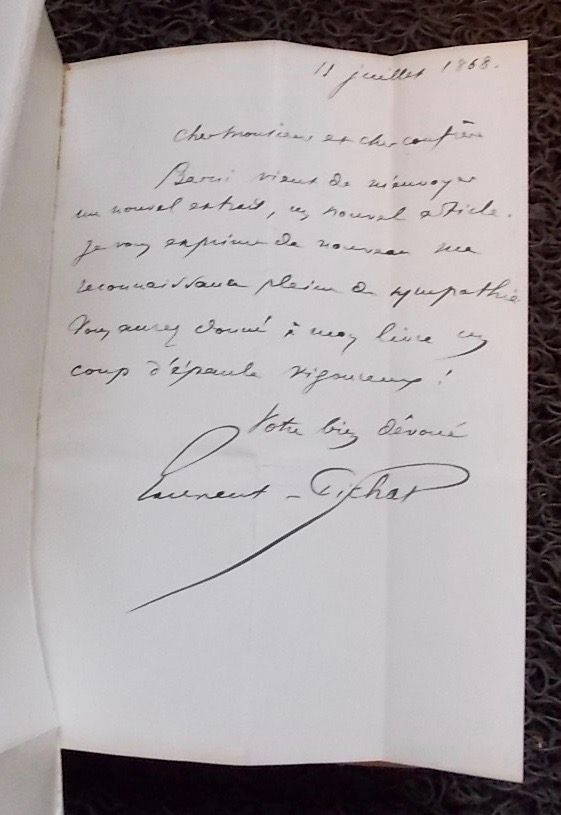 11 juillet 1868.
Cher Monsieur et cher confrère
Barni vient de m'envoyer
un nouvel extrait, un nouvel article.
Je vous exprime de nouveau ma
reconnaissance pleine de sympathie
Vous aurez donné à mon livre un
coup d'épaule vigoureux !
Votre bien dévoué
Laurent-Pichat